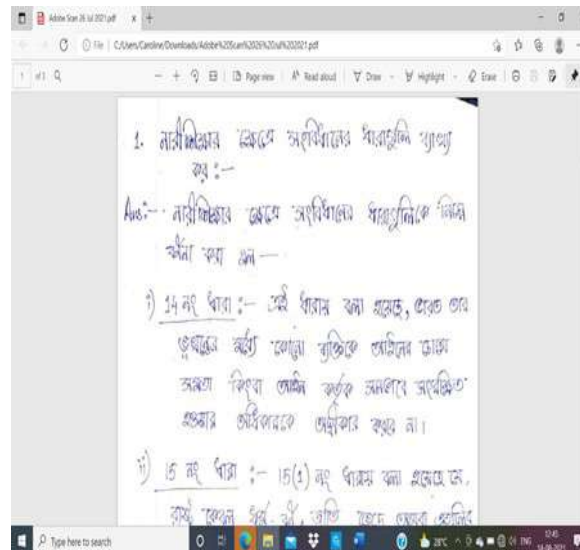 Adobe Scan 26 Jul 2021.pdf
File C:/Users/Caroline/Downloads/Adobe%20Scan%2026%20Jul%202021.pdf
1 of 3 Page view Read aloud Draw Highlight Erase
1. নারীশিক্ষার ক্ষেত্রে সংবিধানের ধারাগুলি ব্যাখ্যা
কর :-
Ans:- নারীশিক্ষার ক্ষেত্রে সংবিধানের ধারাগুলিকে নিম্নে
বর্ণনা করা হল —
i) 14 নং ধারা :- এই ধারায় বলা হয়েছে, ভারত তার
ভূখণ্ডের মধ্যে কোনো ব্যক্তিকে আইনের চোখে
সমতা কিংবা আইন কর্তৃক সমভাবে সংরক্ষিত
হওয়ার অধিকারকে অস্বীকার করবে না।
ii) 15 নং ধারা :- 15(1) নং ধারায় বলা হয়েছে যে,
রাষ্ট্র কেবল ধর্ম, বর্ণ, জাতি
Type here to search 28°C ENG 12:45